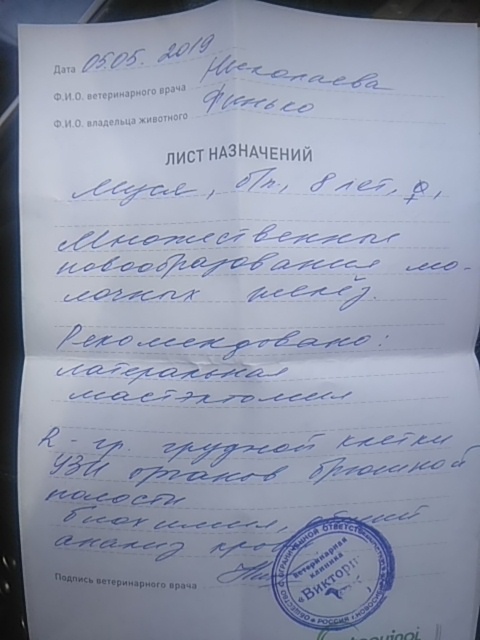 Дата 05.05.2019
Ф.И.О. ветеринарного врача Николаева
Ф.И.О. владельца животного Финько
ЛИСТ НАЗНАЧЕНИЙ
Муся, б/п., 8 лет, ♀,
Множественные
новообразования мо-
лочных желёз.
Рекомендовано:
латеральная
мастэктомия
R-гр. грудной клетки
УЗИ органов брюшной
полости
биохимия, общий
анализ
Подпись ветеринарного врача
ОБЩЕСТВО С ОГРАНИЧЕННОЙ ОТВЕТСТВЕННОСТЬЮ
ветеринарная
клиника
РОССИЯ